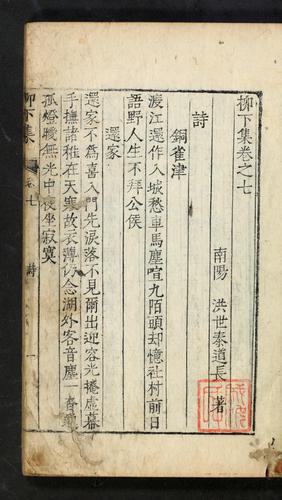 柳下集卷之七
南陽 洪世泰道長 著
詩
銅雀津
渡江還作入城愁車馬塵喧九陌頭却憶社村前日
語野人生不拜公侯
還家
還家不爲喜入門先淚落不見爾出迎容光掩虛幕
手撫諸稚在天寒故衣薄仍念湖外客音塵一春
孤燈曖無光中夜坐寂寞
柳下集 卷七 詩 一